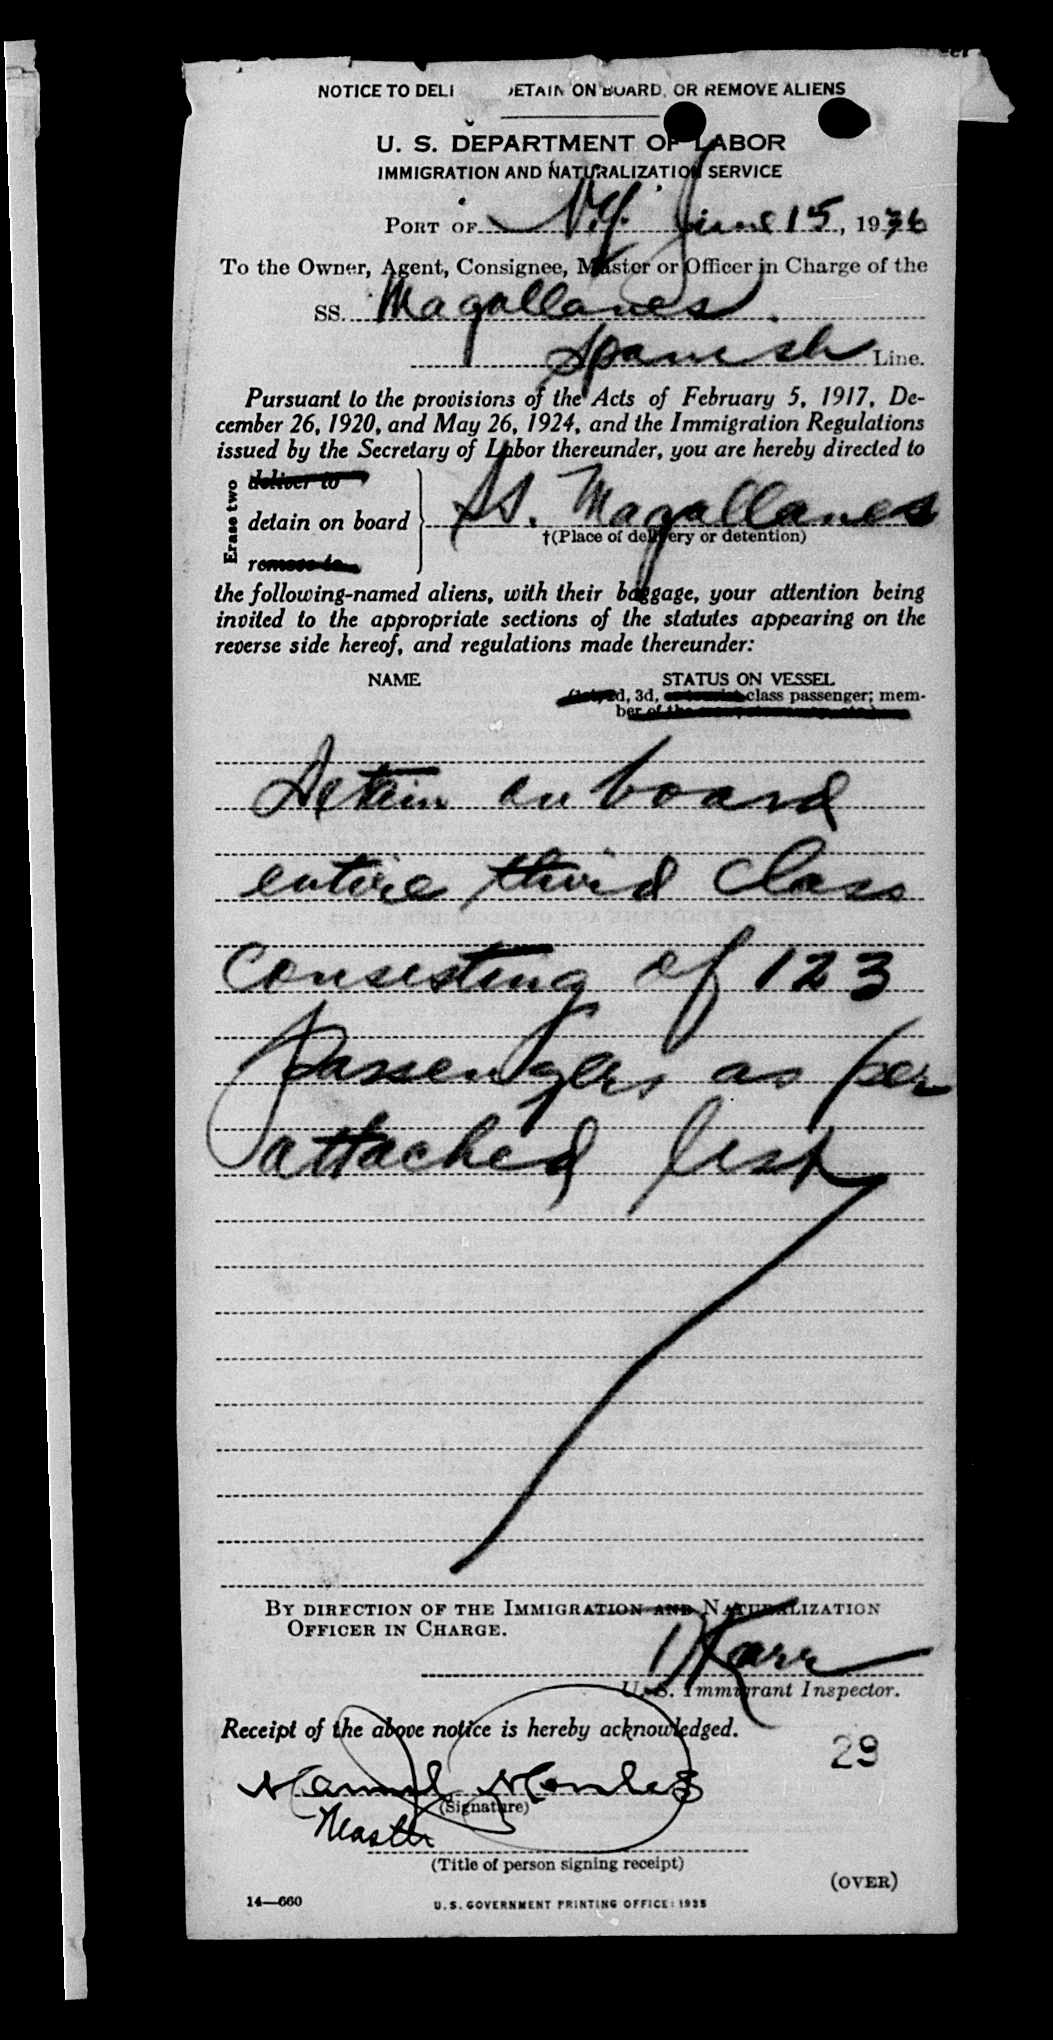 NOTICE TO DELI ETAIN ON BOARD, OR REMOVE ALIENS
U. S. DEPARTMENT OF LABOR
IMMIGRATION AND NATURALIZATION SERVICE
PORT OF N.Y. June 15, 1936
To the Owner, Agent, Consignee, Master or Officer in Charge of the
SS. Magallanes
Spanish Line.
Pursuant to the provisions of the Acts of February 5, 1917, De-
cember 26, 1920, and May 26, 1924, and the Immigration Regulations
issued by the Secretary of Labor thereunder, you are hereby directed to
Erase two
deliver to
detain on board SS. Magallanes
†(Place of delivery or detention)
remove to
the following-named aliens, with their baggage, your attention being
invited to the appropriate sections of the statutes appearing on the
reverse side hereof, and regulations made thereunder:
NAME STATUS ON VESSEL
(1st, 2d, 3d, or tourist class passenger; mem-
ber of the
Detain on board
entire third class
consisting of 123
passengers as per
attached list
BY DIRECTION OF THE IMMIGRATION AND NATURALIZATION
OFFICER IN CHARGE.
Karr
U. S. Immigrant Inspector.
Receipt of the above notice is hereby acknowledged.
29
Manuel Morales
(Signature)
Master
(Title of person signing receipt)
(OVER)
14—660 U. S. GOVERNMENT PRINTING OFFICE: 1935